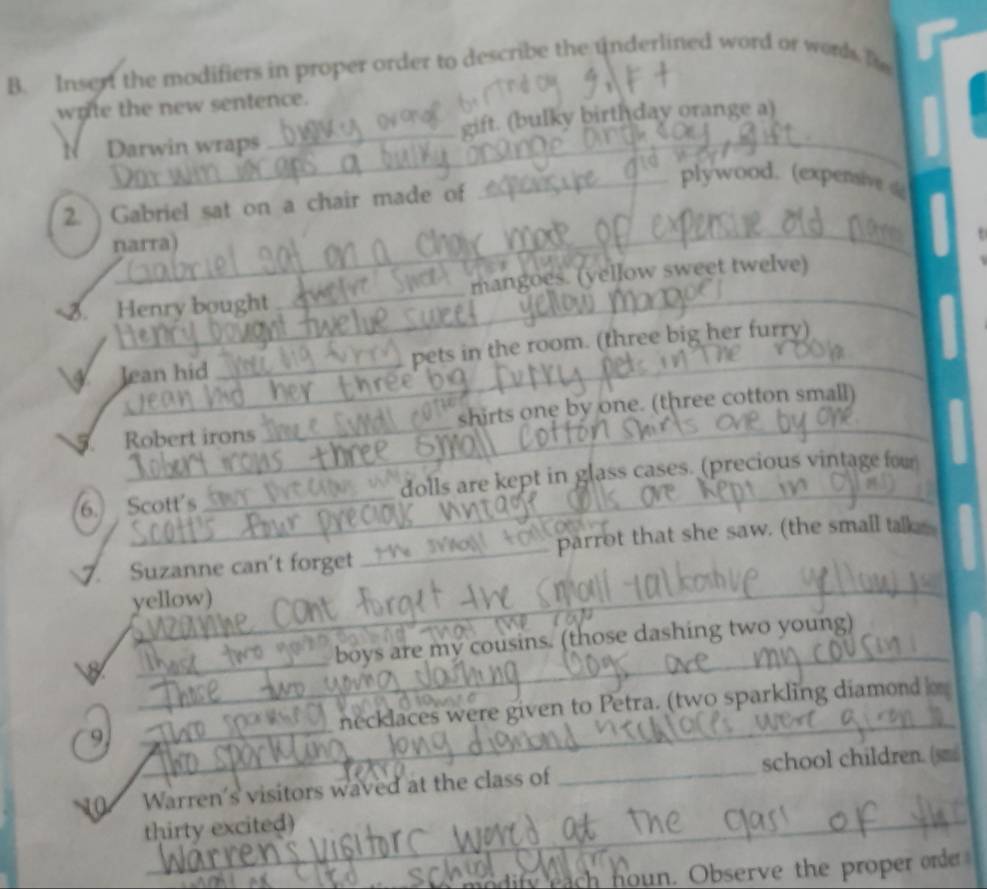 B. Insert the modifiers in proper order to describe the underlined word or words.
write the new sentence.
gift
Darwin wraps gift. (bulky birthday orange a)
Darwin wraps a bulky orange gift.
2. Gabriel sat on a chair made of expensive old plywood. (expensive
narra)
Gabriel sat on a chair made of expensive old
Henry bought twelve sweet mangoes. (yellow sweet twelve)
Henry bought twelve sweet yellow
Jean hid three big furry pets in the room. (three big her furry)
Jean hid her three big furry pets in the room
5. Robert irons three small shirts one by one. (three cotton small)
Robert irons three small cotton shirts one by one.
6. Scott's four precious dolls are kept in glass cases. (precious vintage four)
Scott's four precious vintage dolls are kept in glass
7. Suzanne can't forget the small parrot that she saw. (the small
yellow)
Suzanne cant forget the small talkative yellow
that she
8. Those two young boys are my cousins. (those dashing two young)
Those two young dashing boys are my cousin
9 Two long necklaces were given to Petra. (two sparkling diamond long
Two sparkling long diamond necklaces were given
10 Warren's visitors waved at the class of school children.
thirty excited)
Warren's visitors waved at the class of
school children
modify each noun. Observe the proper order